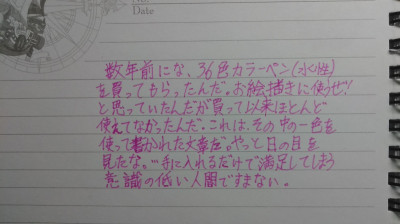 No.
Date
数年前にな、36色カラーペン(水性)
を買ってもらったんだ。お絵描きに使うぜ!
と思っていたんだが買って以来ほとんど
使えてなかったんだ。これは、その中の一色を
使って書かれた文章だ。やっと日の目を
見たな。…手に入れるだけで満足してしまう
意識の低い人間ですまない。